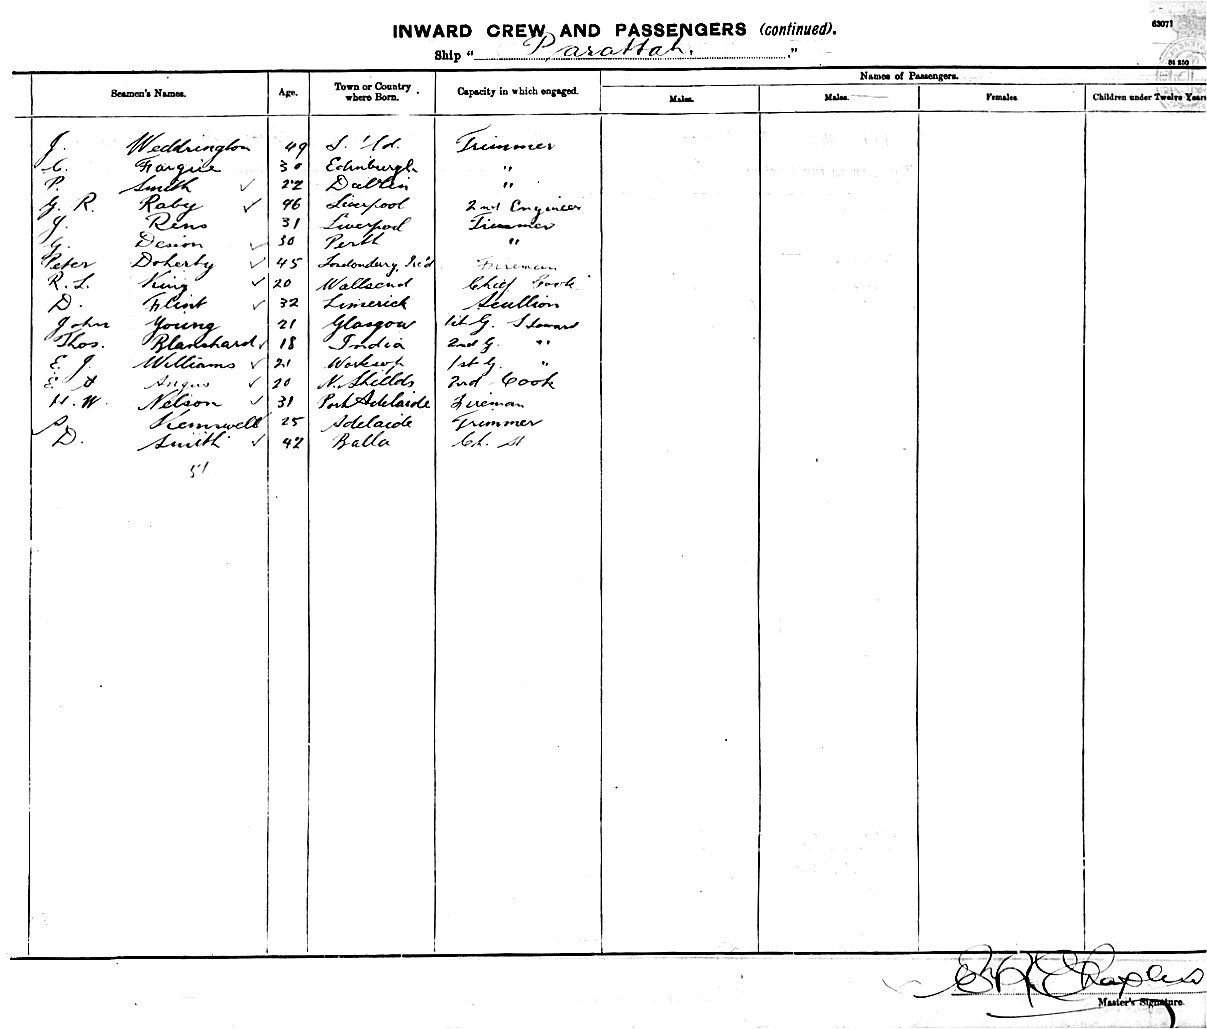 63071
INWARD CREW AND PASSENGERS (continued).
Ship " Parattah. ."
Seamen's Names. Age. Town or Country where Born. Capacity in which engaged. Names of Passengers.
Males. Males. Females. Children under Twelve Years
J. Weddrington 49 Trimmer
C. Forgue 30 Edinburgh "
P. Smith ✓ 22 Dublin "
G. R. Raby ✓ 46 Liverpool 2nd Engineer
J. Rens 31 Liverpool Trimmer
G. Desion ✓ 30 Perth "
Peter Doherty ✓ 45 Londonderry, Ire'd Fireman
R. L. King ✓ 20 Wallsend Chief Cook
D. Flint ✓ 32 Limerick Scullion
John Young 21 Glasgow 1st G. Steward
Thos. Blanchard ✓ 18 India 2nd G. "
E. J. Williams ✓ 21 Worksop 1st G. "
E. A Angus ✓ 20 N. Shields 2nd Cook
H. W. Nelson ✓ 31 Port Adelaide Fireman
Kemswell 25 Adelaide Trimmer
D. Smith ✓ 42 Balla Ch. St
51
Master's Signature.